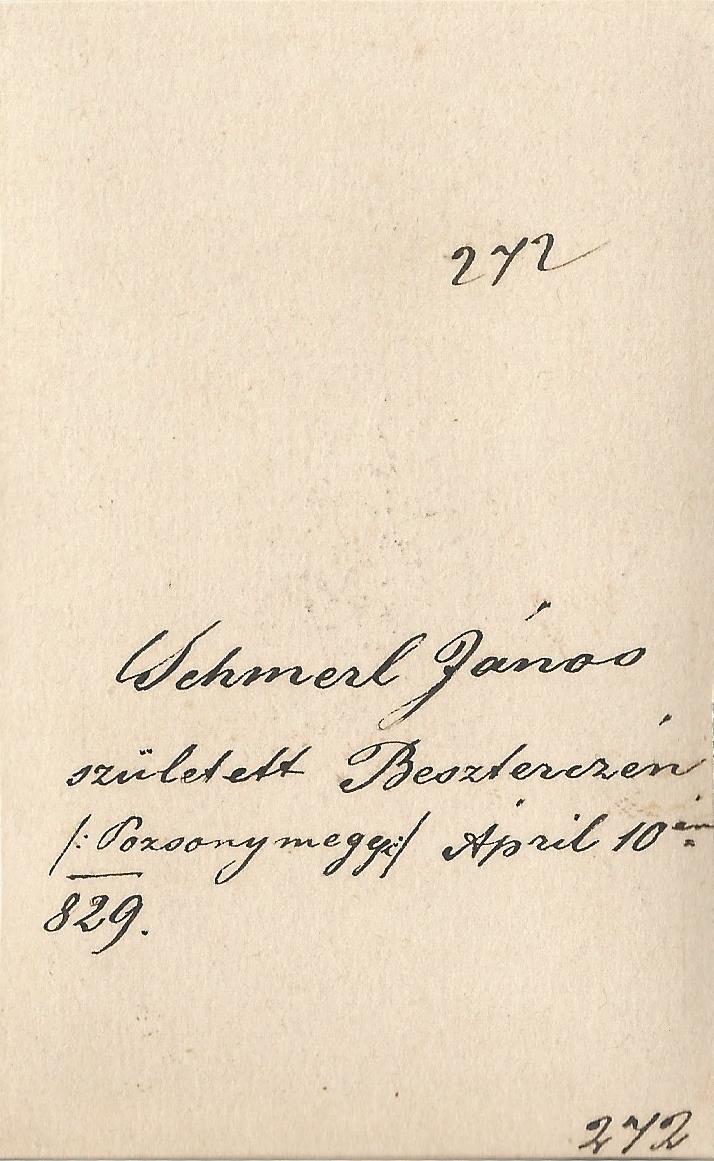 272
Schmerl János
született Beszterczén
/: Pozsonymegye :/ April 10én
829.
272